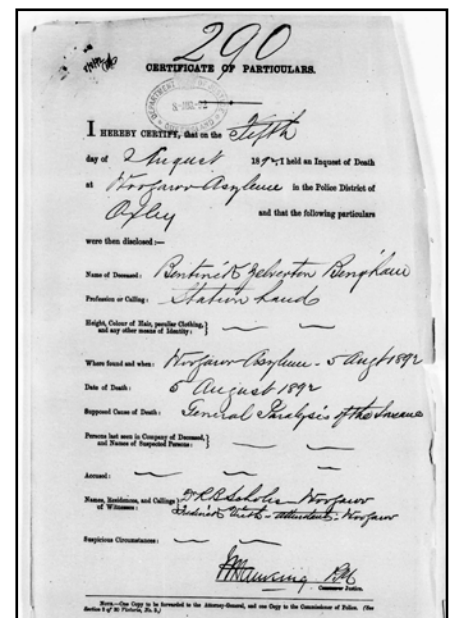 290
CERTIFICATE OF PARTICULARS.
DEPARTMENT OF JUSTICE
I HEREBY CERTIFY, that on the Fifth
day of August 1892 I held an Inquest of Death
at Woogaroo Asylum in the Police District of
Oxley and that the following particulars
were then disclosed :—
Name of Deceased : Bentinck Yelverton Bingham
Profession or Calling : Station hand
Height, Colour of Hair, peculiar Clothing, and any other means of Identity : } — —
Where found and when : Woogaroo Asylum - 5 Augt 1892
Date of Death : 5 August 1892
Supposed Cause of Death : General Paralysis of the Insane
Persons last seen in Company of Deceased, and Names of Suspected Persons : } — —
Accused : — — —
Names, Residences, and Callings of Witnesses : } R B Scholes - Woogaroo
Frederick - attendant - Woogaroo
Suspicious Circumstances : — —
Manning P.M.
Justice.
NOTE.—One Copy to be forwarded to the Attorney-General, and one Copy to the Commissioner of Police. (See
Section 5 of 30 Victoria, No. 3.)